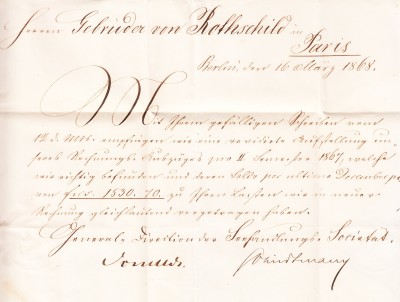 Herren Gebrüder von Rothschild in
Paris
Berlin, den 16 März 1868.
Mit Ihrem gefälligen Schreiben vom
12 d. Mts. empfingen wir eine revidirte Aufstellung un-
seres Rechnungs-Auszuges pro II Semester 1867, welche
wir richtig befunden und deren Saldo per ultimo December pr
von frcs 1830. 70. zu Ihren Lasten wir in neuer
Rechnung gleichlautend vorgetragen haben.
General-Direction der Seehandlungs-Societät.